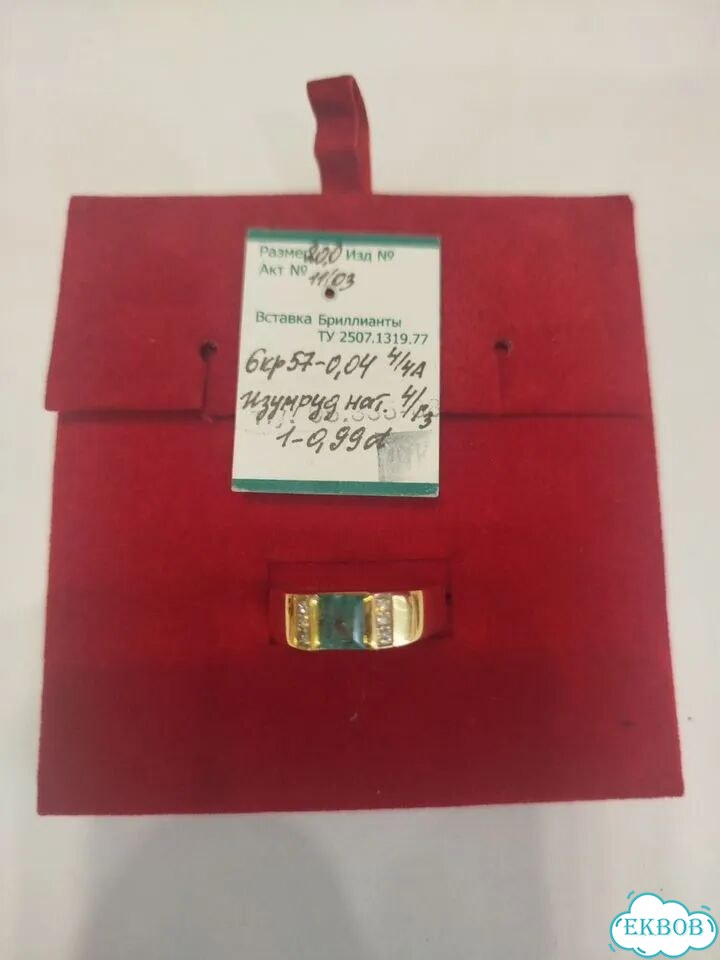 Размер 20,0 Изд №
Акт № 11/03
Вставка Бриллианты
ТУ 2507.1319.77
6кр57-0,04 4/4А
изумруд нат. 4/Г3
1-0,99ct
EKBOB